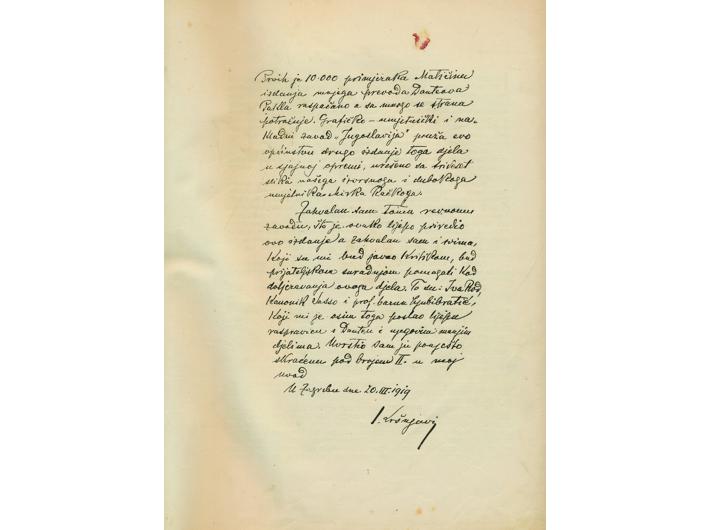 Prvih je 10.000 primjeraka Matičina
izdanja mojega prevoda Danteova
Pakla raspačano a sa mnogo se strana
potražuje. Grafičko-umjetnički i na-
kladni zavod „Jugoslavija" pruža evo
općinstvu drugo izdanje toga djela
u sjajnoj opremi, urešeno sa trideset
slika našega izvrsnoga i dubokoga
umjetnika Mirka Račkoga.
Zahvalan sam tomu revnomu
zavodu, što je ovako lijepo priredio
ovo izdanje a zahvalan sam i svima,
koji su mi bud javno kritikom, bud
prijateljskom suradnjom pomagali kod
dotjeravanja ovoga djela. To su: Iva
kanonik Jasso i prof. barun Ljubibratić,
koji mi je osim toga poslao lijepu
raspravicu o Danteu i njegovim manjim
djelima. Uvrstio sam ju ponješto
skraćenu pod brojem II. u moj
uvod
U Zagrebu dne 20.III.1919
I. Kršnjavi